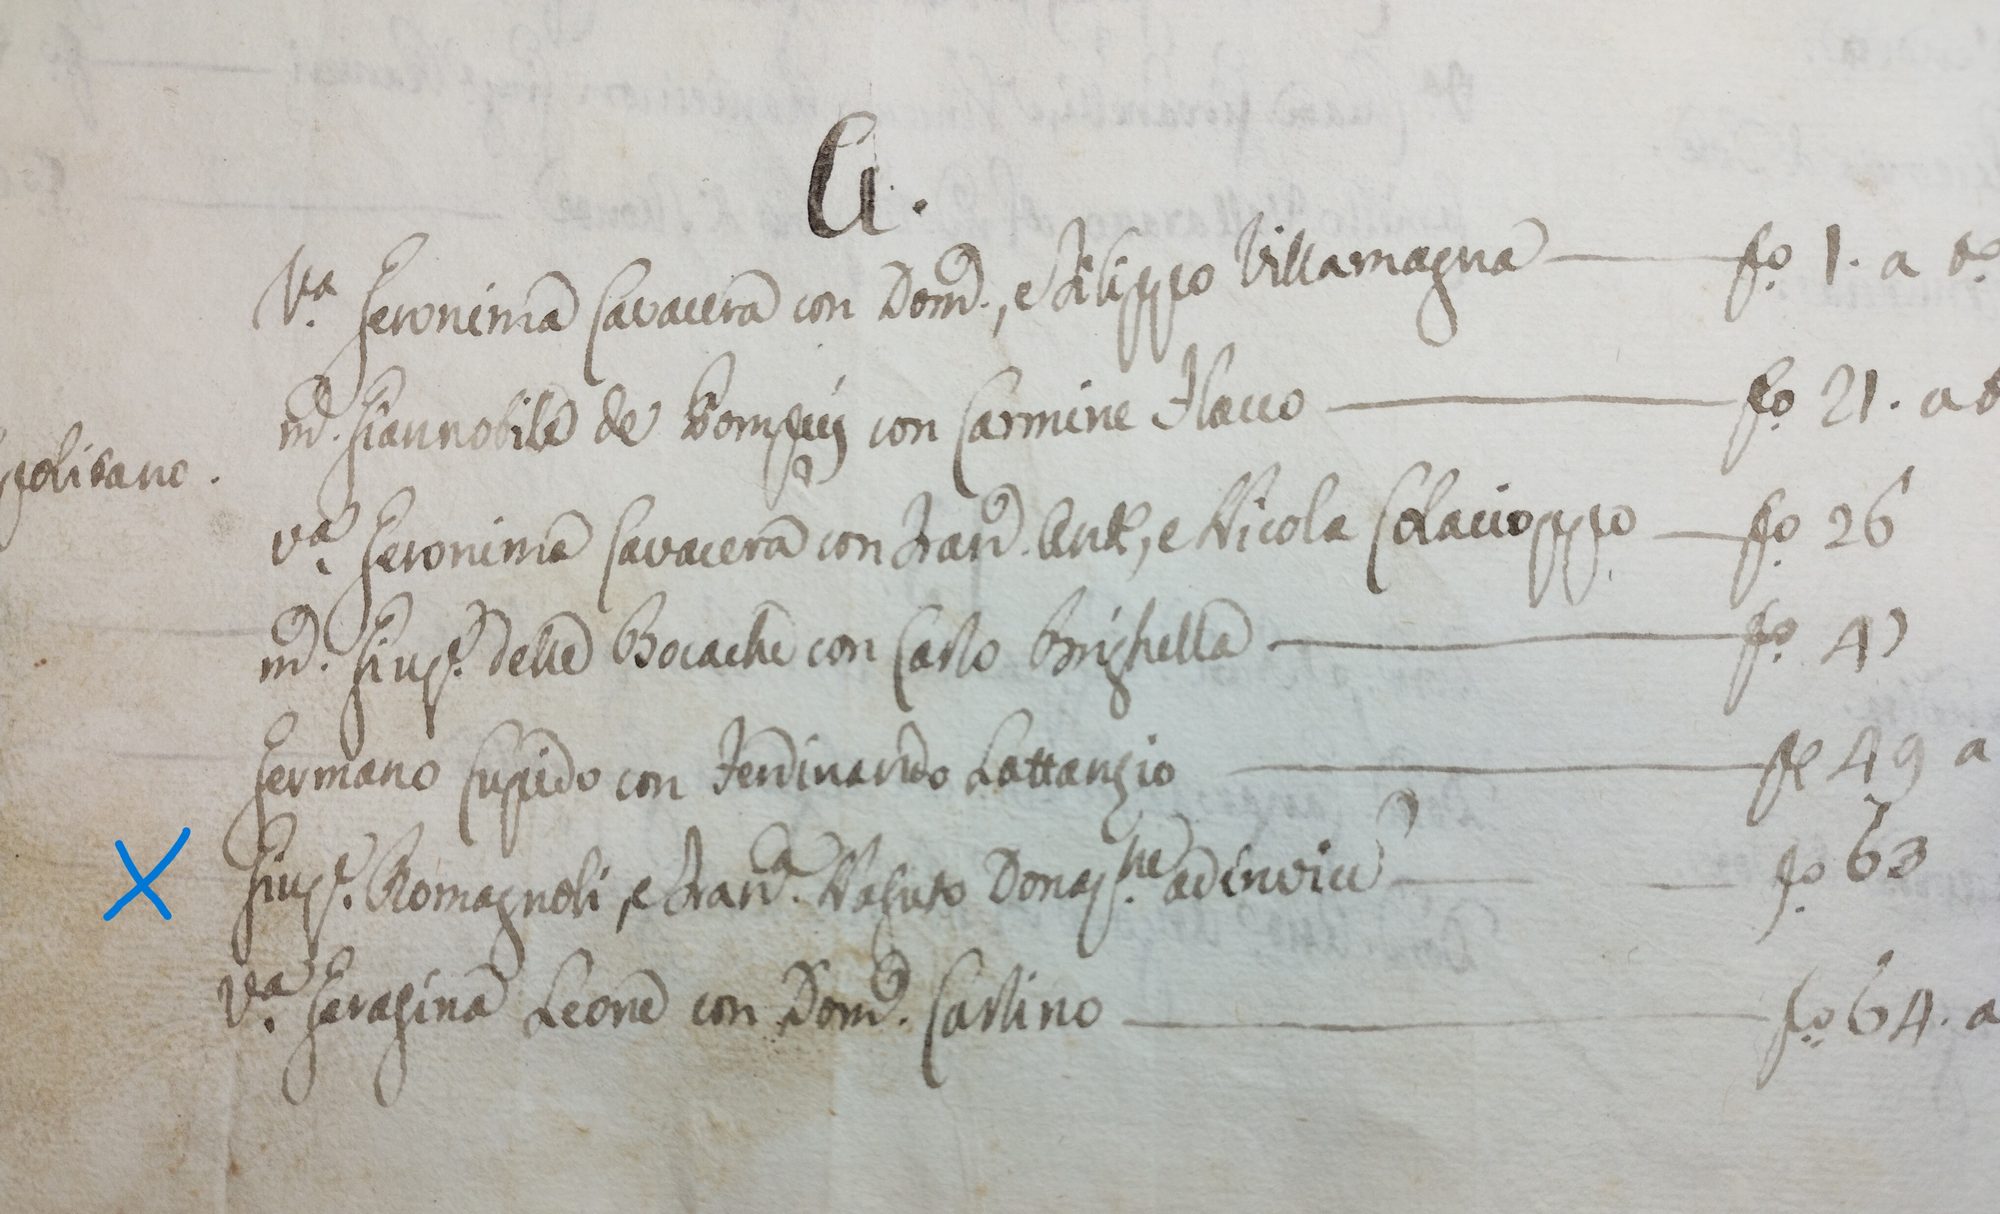 G.
V.a Geronima Cavacera con Dom.o, e Filippo Villamagna fo. 1. a t.o
m.o Giannobile de Pompeij con Carmine Flacco fo. 21. a t
politano.
v.a Geronima Cavacera con Fran.o Ant.o, e Nicola Colacioppo fo. 26
m.o Giup.e delle Bocache con Carlo Brighella fo. 47
Germano Cupido con Ferdinando Lattanzio fo. 49 a
Giup.e Romagnoli, e Fran.a Vasuto Donat.ne adinvice fo. 63
V.a Serafina Leone con Dom.o Carlino fo. 64. a